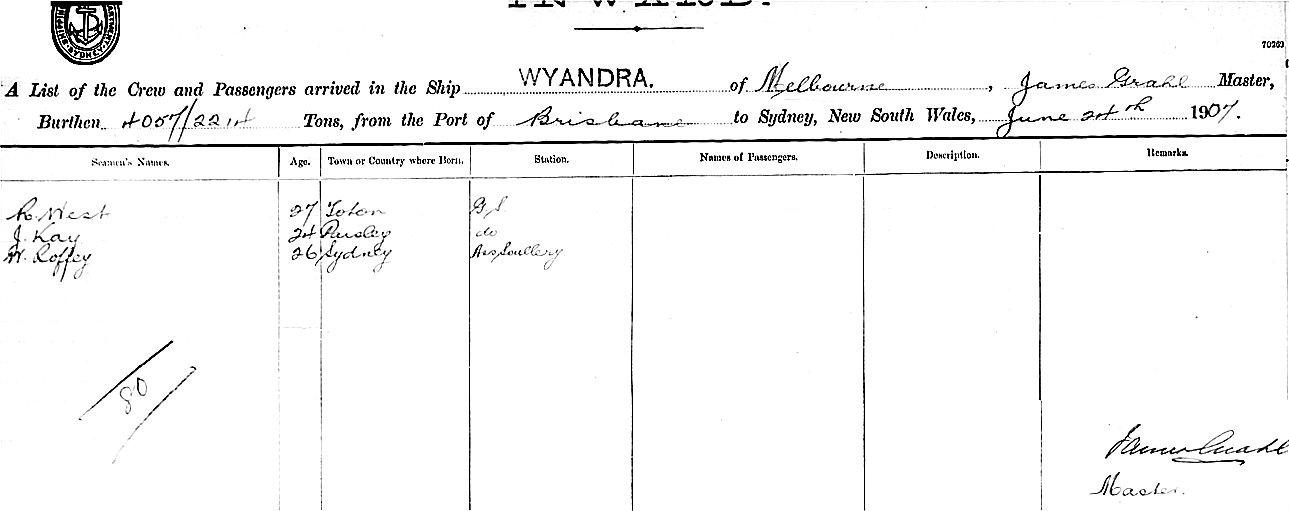 INWARD.
SHIPPING DEPARTMENT SYDNEY
70263
A List of the Crew and Passengers arrived in the Ship WYANDRA. of Melbourne, James Grahl Master,
Burthen 4057/2214 Tons, from the Port of Brisbane to Sydney, New South Wales, June 24th 1907.
Seamen's Names. Age. Town or Country where Born. Station. Names of Passengers. Description. Remarks.
R. West 27 G.S.
J. Kay 24 Paisley do
W. Roffey 26 Sydney
80
James Grahl
Master.